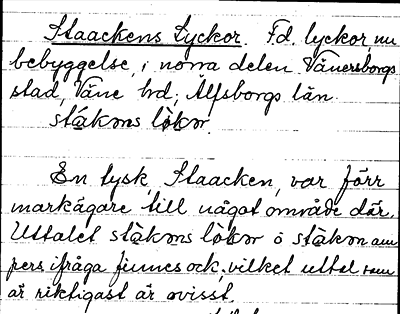 Staackens Lyckor. Fd. lyckor, nu
bebyggelse, i norra delen Vänersborgs
stad, Väne hd; Älfsborgs län.
stákəns lòkər.
En tysk, Staacken, var förr
markägare till något område där.
Uttalet stákəns lòkər o stákən am
pers ifråga finnes ock; vilket uttal som
är riktigast är ovisst.